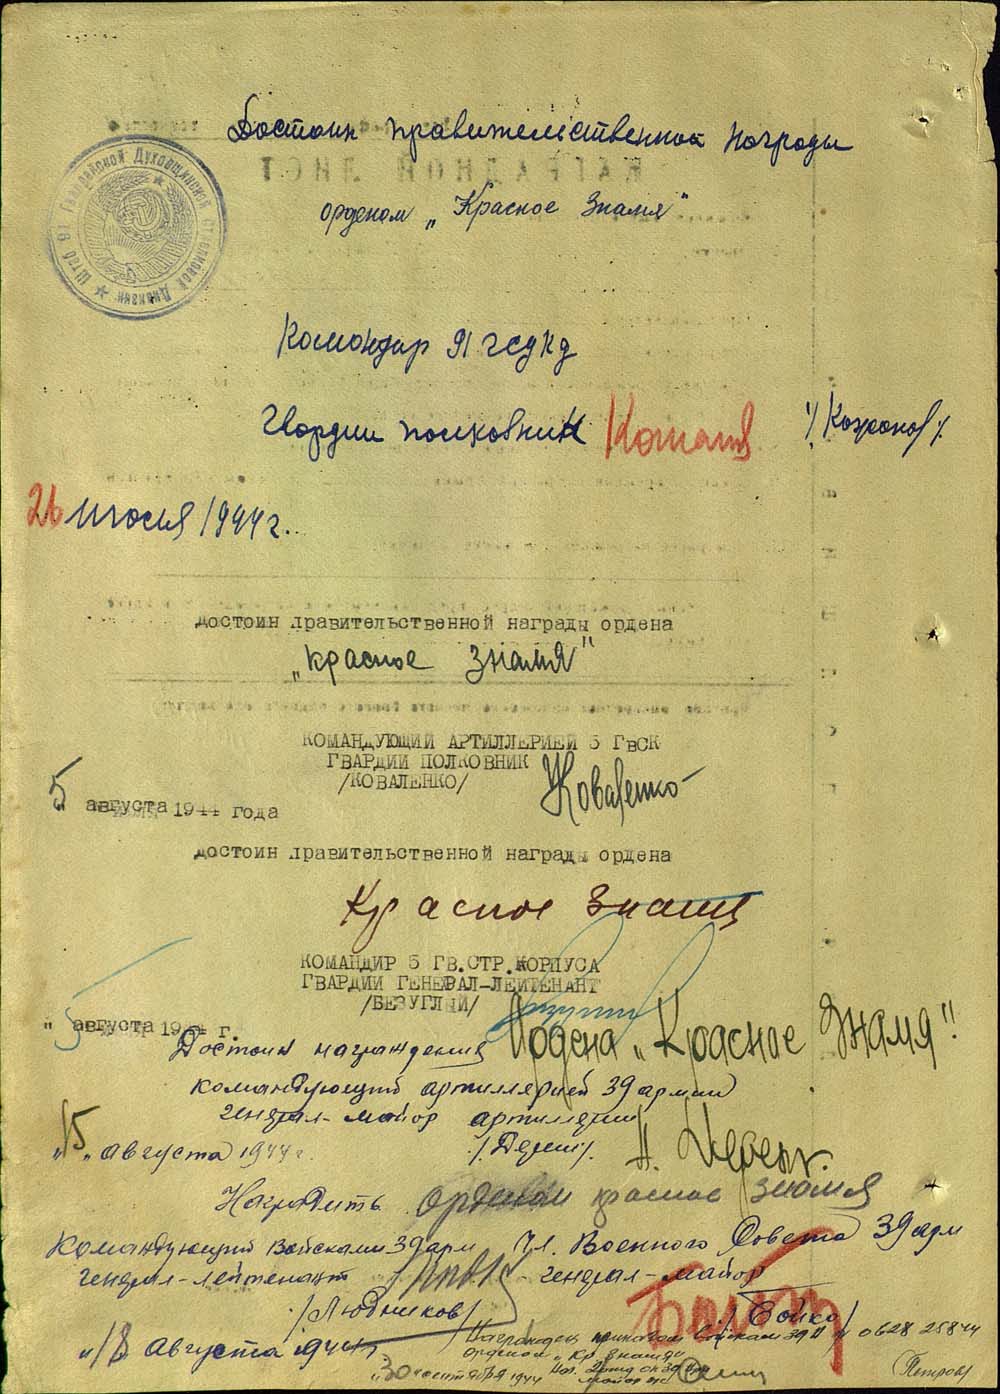 Достоин правительственной награды
НАГРАДНОЙ ЛИСТ
орденом „Красное Знамя"
Штаб 91 Гвардейской Духовщинской стрелковой Дивизии
Командир 91 гсдкд
Гвардии полковник /Кожанов/
26 июля 1944 г.
достоин правительственной награды ордена
„Красное Знамя"
КОМАНДУЮЩИЙ АРТИЛЛЕРИЕЙ 5 ГвСК
ГВАРДИИ ПОЛКОВНИК
/КОВАЛЕНКО/ Коваленко
5 августа 1944 года
достоин правительственной награды ордена
Красное Знамя
КОМАНДИР 5 ГВ.СТР.КОРПУСА
ГВАРДИИ ГЕНЕРАЛ-ЛЕЙТЕНАНТ
/БЕЗУГЛЫЙ/
" августа 1944 г.
Достоин награждения Ордена „Красное Знамя".
командующий артиллерией 39 армии
генерал-майор артиллерии
„15" августа 1944 г.
Наградить орденом красное знамя
Командующий войсками 39 арм Чл. Военного Совета 39 арм
генерал-лейтенант генерал-майор
/Людников/ /Бойко/
"18 августа 1944
Награжден приказом войскам 39 А № 0628
орденом „Кр. Знамя"
"30" сентября 1944